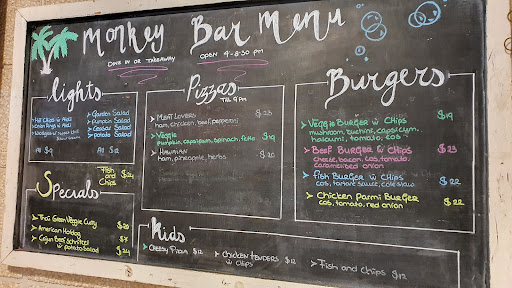 Monkey Bar Menu
DINE IN OR TAKEAWAY
OPEN 9-8:30 PM
Lights
Hot Chips w Aioli
Onion Rings w Aioli
Wedges w Sweet Chilli
Sour Cream
All $9
Garden Salad
Pumpkin Salad
Caesar Salad
Potato Salad
All $12
Fish and Chips $24
Specials
Thai Green Veggie Curry $20
American Hotdog $7
Cajun Beef Schnitzel
w potato salad $24
Pizzas
Till 9pm
MEAT LOVERS $23
ham, chicken, beef, pepperoni
VEGGIE $19
Pumpkin, capsicum, spinach, feta
HAWAIIAN $20
ham, pineapple, herbs
Burgers
VEGGIE BURGER W CHIPS $19
mushroom, zuchini, capsicum,
haloumi, tomato, cos
BEEF BURGER W CHIPS $23
cheese, bacon, cos, tomato,
caramelised onion
FISH BURGER W CHIPS $22
cos, tartare sauce, coleslaw
CHICKEN PARMI BURGER $22
cos, tomato, red onion
Kids
CHEESY PIZZA $12
CHICKEN TENDERS $12
W CHIPS
FISH AND CHIPS $12